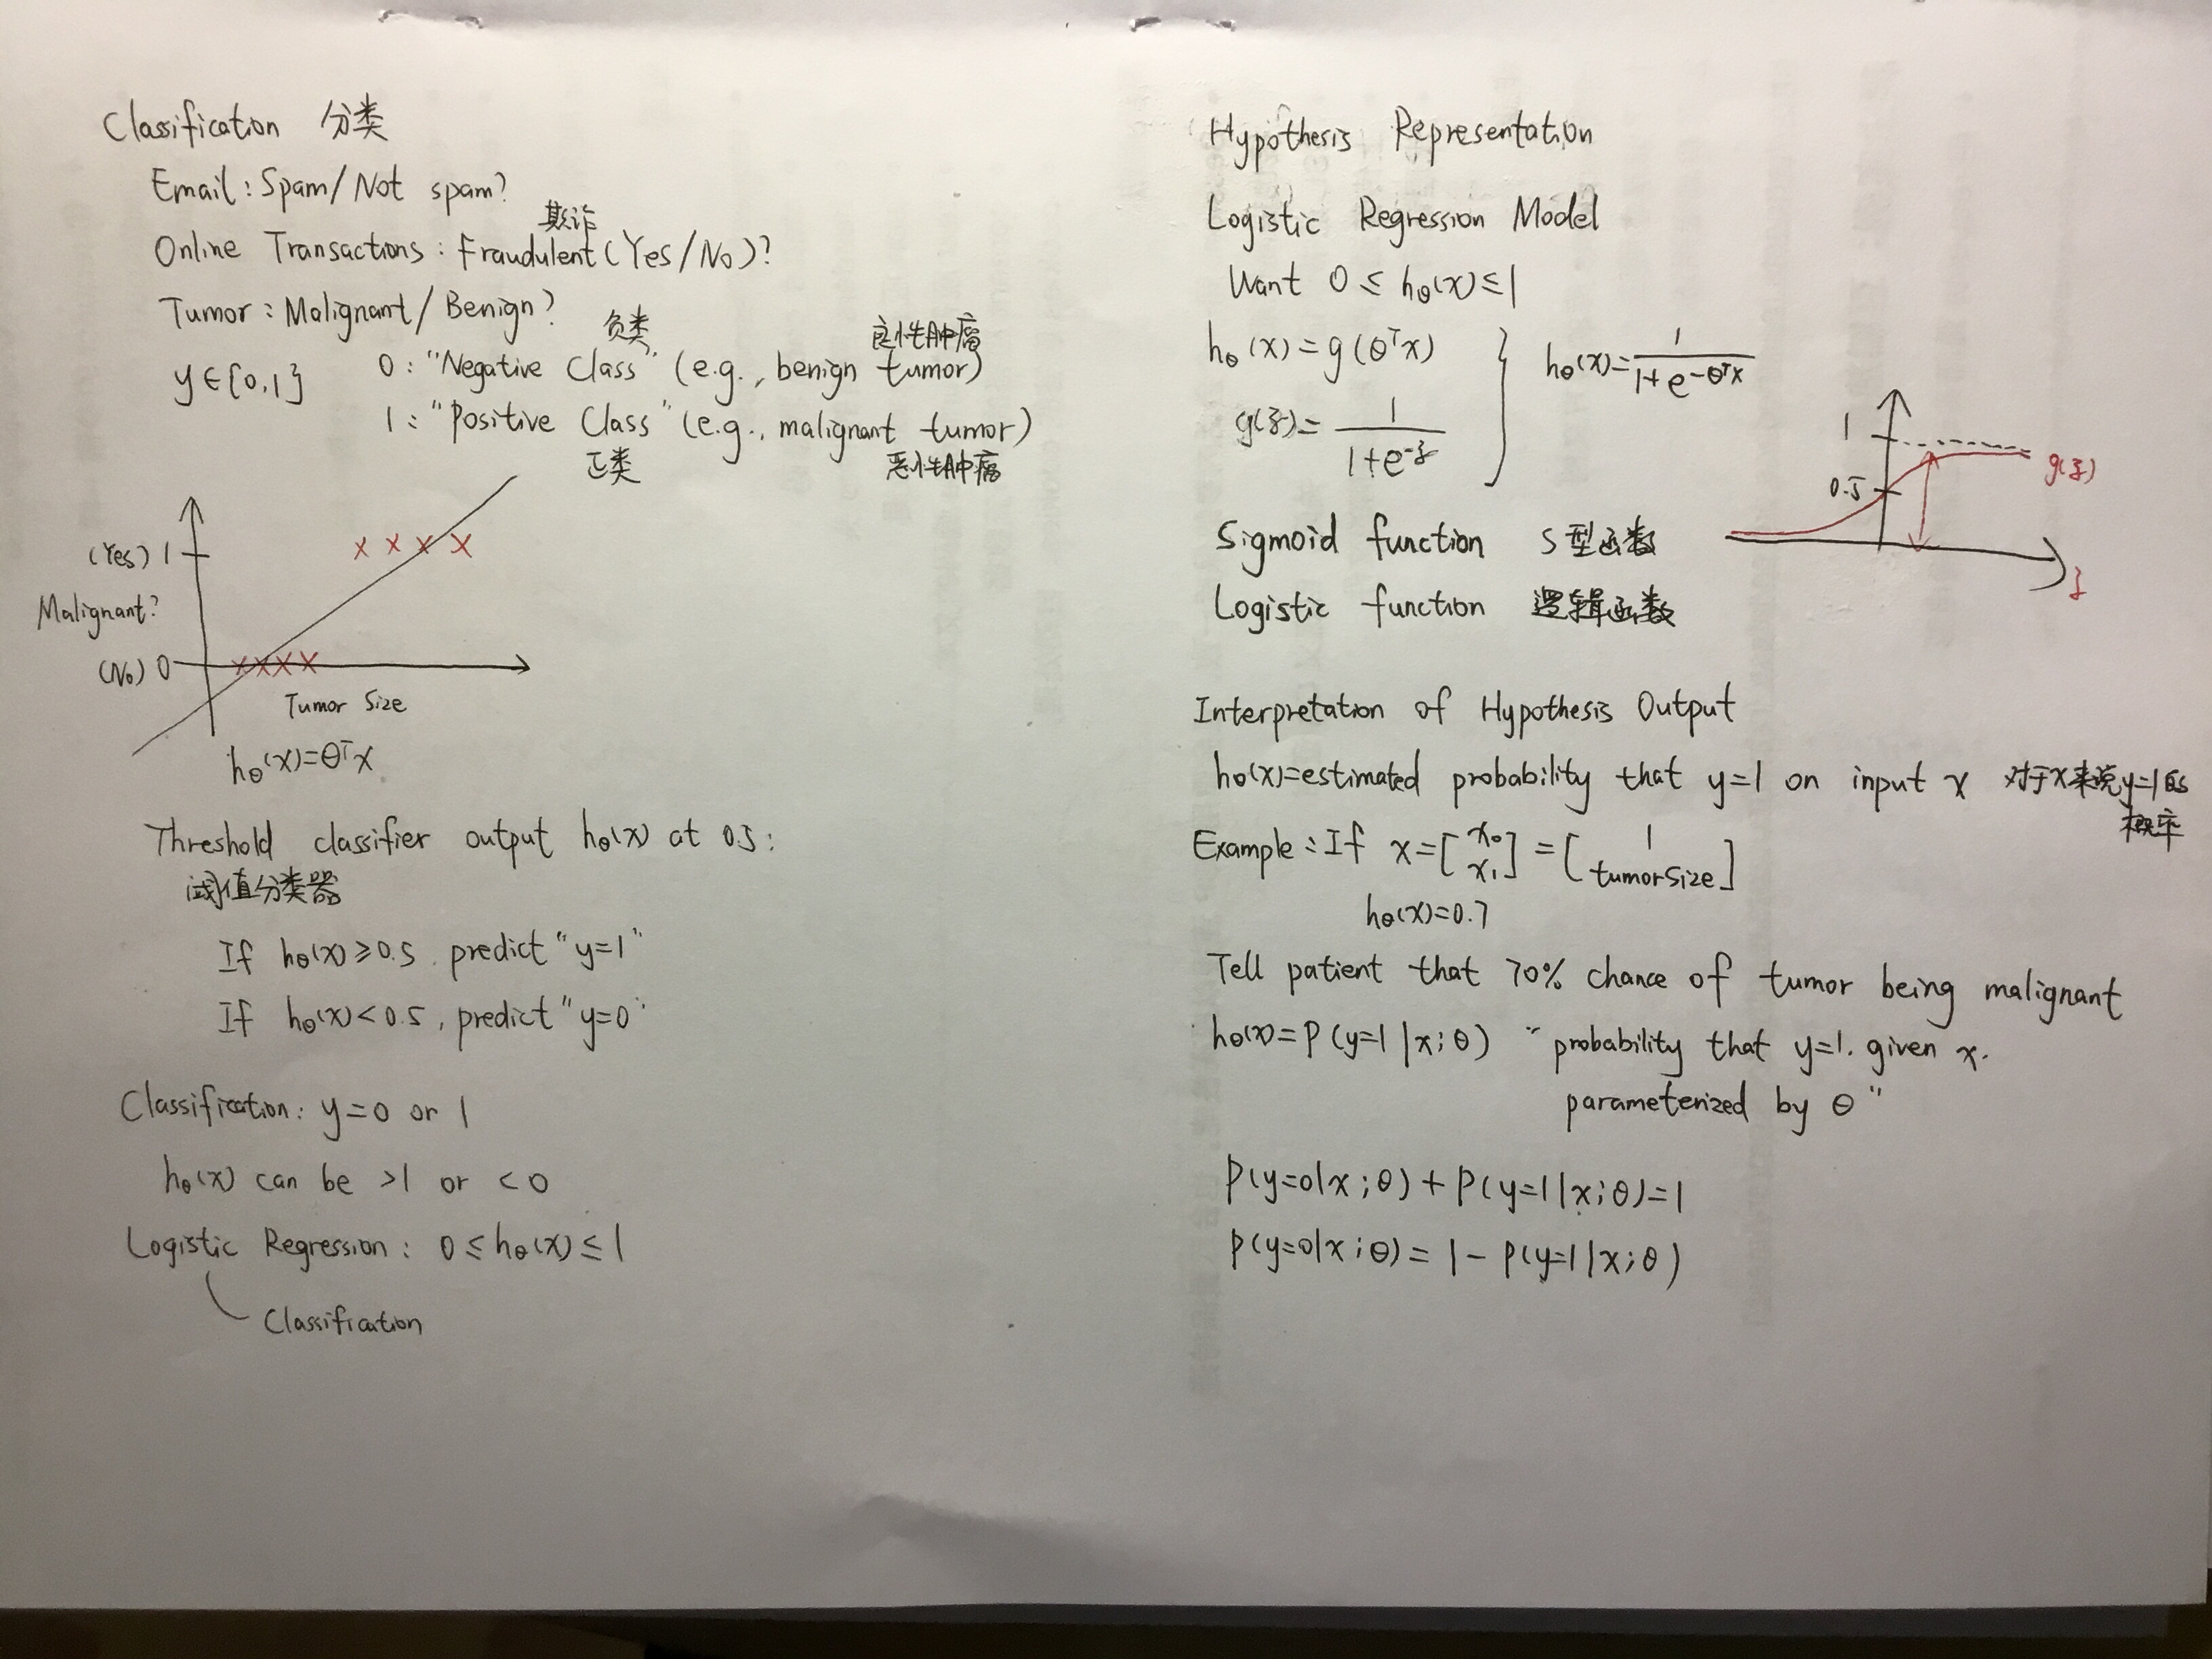 Classification 分类
Email: Spam/Not spam?
欺诈
Online Transactions: Fraudulent (Yes/No)?
Tumor: Malignant/Benign?
负类 良性肿瘤
y∈{0,1} 0: "Negative Class" (e.g., benign tumor)
1: "Positive Class" (e.g., malignant tumor)
正类 恶性肿瘤
(Yes) 1
Malignant?
(No) 0
Tumor Size
hθ(x)=θᵀx
Threshold classifier output hθ(x) at 0.5:
阈值分类器
If hθ(x)≥0.5, predict "y=1"
If hθ(x)<0.5, predict "y=0"
Classification: y=0 or 1
hθ(x) can be >1 or <0
Logistic Regression: 0≤hθ(x)≤1
Classification
Hypothesis Representation
Logistic Regression Model
Want 0≤hθ(x)≤1
hθ(x)=g(θᵀx)
g(z)=1/(1+e^-z)
} hθ(x)=1/(1+e^-θᵀx)
1
0.5
g(z)
z
Sigmoid function S型函数
Logistic function 逻辑函数
Interpretation of Hypothesis Output
hθ(x)=estimated probability that y=1 on input x 对于x来说y=1的
概率
Example: If x=[x₀ x₁]=[1 tumorSize]
hθ(x)=0.7
Tell patient that 70% chance of tumor being malignant
hθ(x)=P(y=1|x;θ) "probability that y=1, given x,
parameterized by θ"
P(y=0|x;θ)+P(y=1|x;θ)=1
P(y=0|x;θ)=1-P(y=1|x;θ)